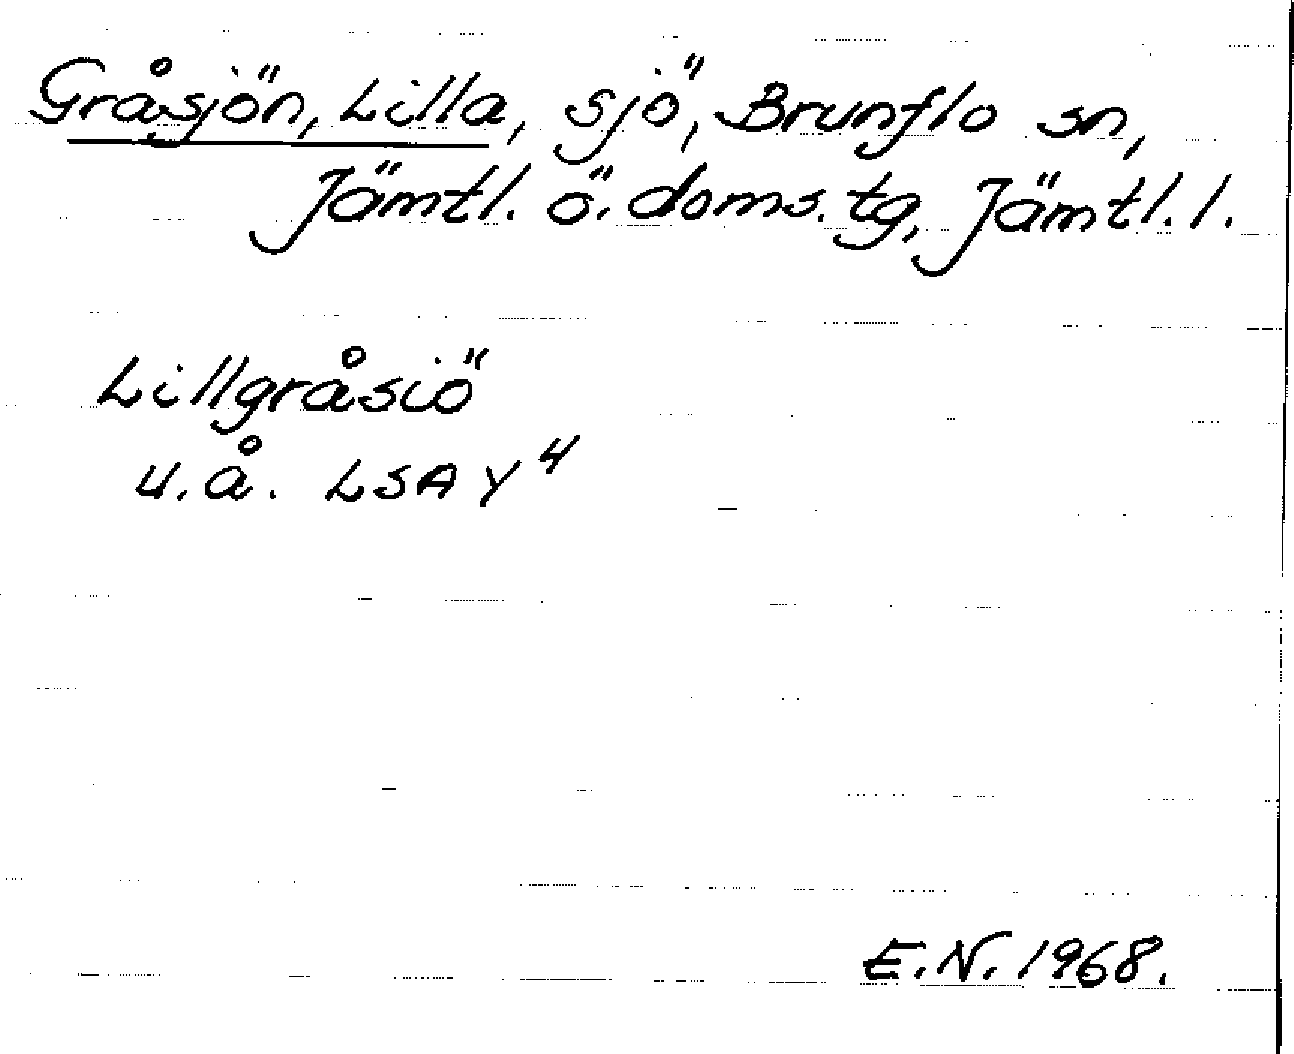 Gråsjön, Lilla, sjö, Brunflo sn,
Jämtl. ö. doms. tg, Jämtl. l.
Lillgråsiö
u.å. LSA Y 4
E.N. 1968.